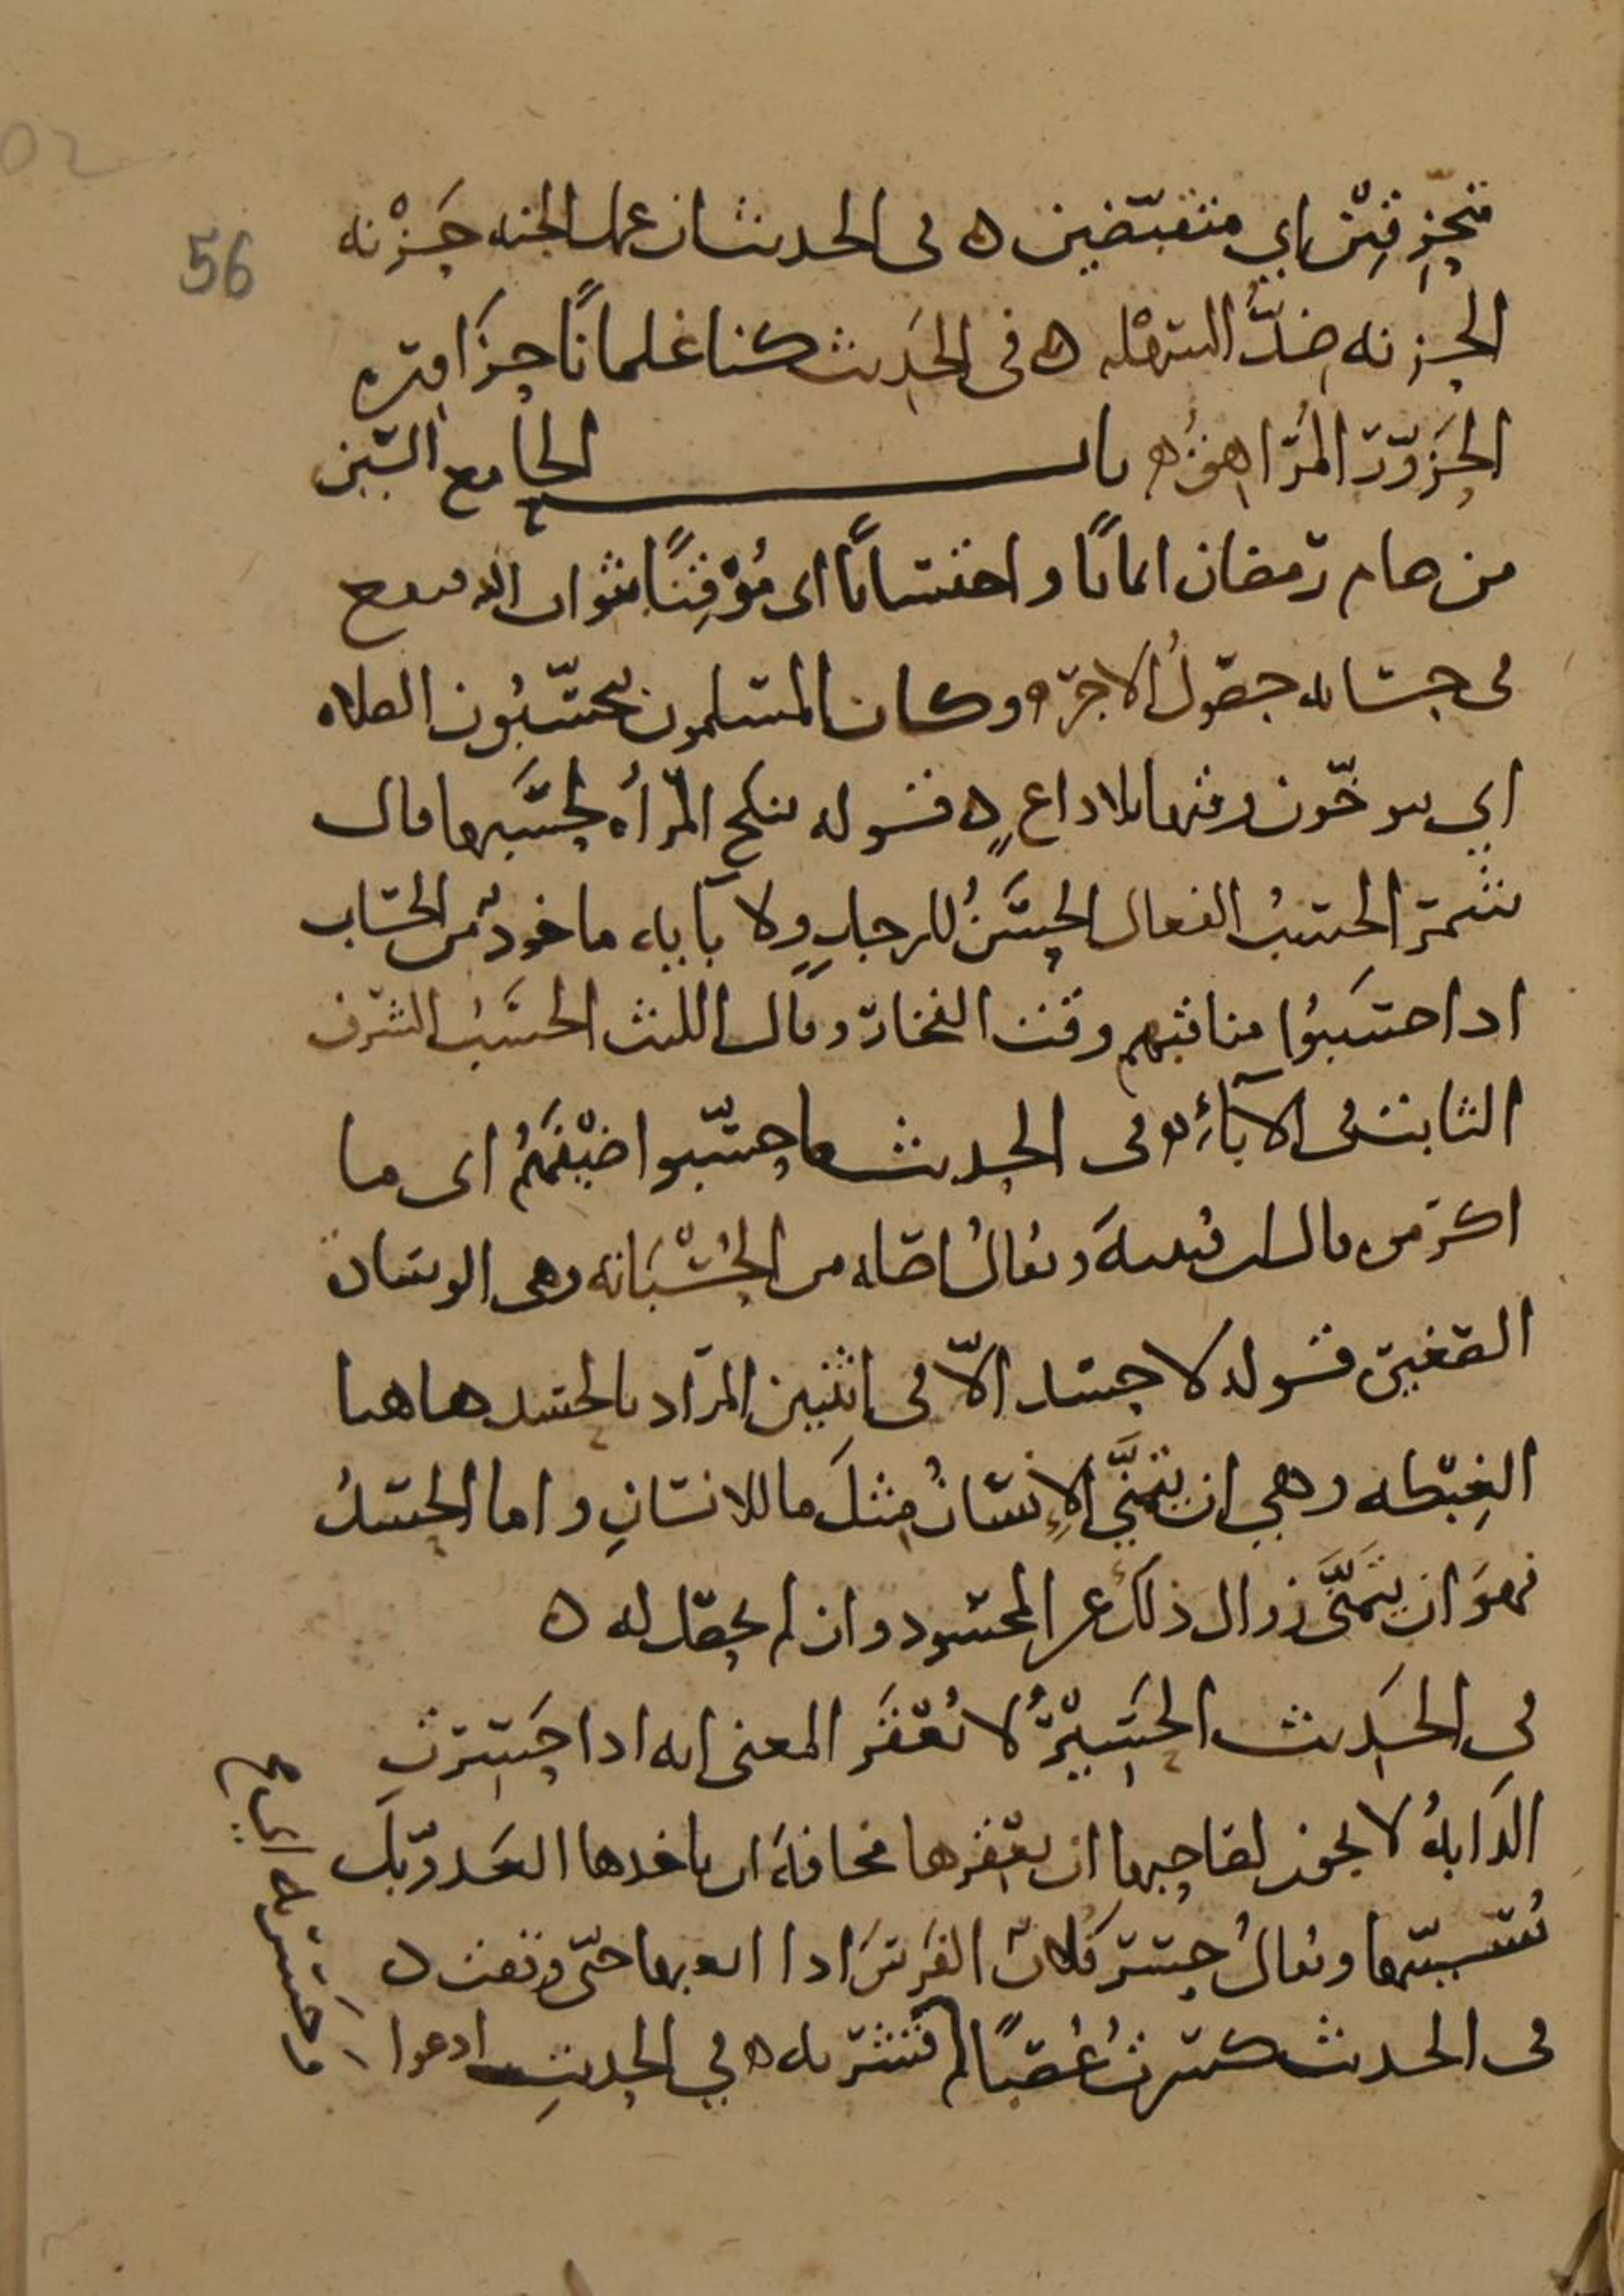 متحزقين اي متقبضين ه في الحديث ان عمل الجنه حَزْنه
الحزنه ضدُّ السهْله ه في الحَديث كنا غلمانًا حزاوره
الحَزَوّر المُراهقُ ه باب الحا مع السين
من صام رمضان ايمانًا واحتسابًا اى مُؤْقِنًا بثواب الله
في حسابه حصولُ الاجر ه وكان المسلمون يحتسّبُون الصلاه
اي يتوخّون وقتها بلا داعٍ ه قوله تنكح المرأه لحسَبها قال
شمر الحسبُ الفعال الحسَنُ للرجلِ ولآبايه ماخوذ من الحسَاب
اذا احتسَبُوا مناقبهم وقت الفخار وقال الليث الحسَبُ الشرف
الثابت في الآباءِ ه وفى الحديث ما حسّبوا ضيْفَهُم اى ما
اكرموه قال ابن قتيبهَ ويقالُ اصله من الحُسْبَانه وهى الوساده
الصغيره قوله لا حسد الاّ في اثنين المراد بالحسد هاهنا
الغِبْطه وهي ان يتمنَّي الإِنسانُ مِثلَ ما للانسانِ واما الحسدُ
فهوَ ان يتمَنَّى زوال ذلك عن المحسود وان لم يحصل له ه
في الحَديث الحَسِيْرُ لا يُعْقَر المعنى انه اذا حَسِرَت
الدَابةُ لا يجوز لصاحبها ان يعقرها مخافةَ ان ياخدها العَدو بلَ
يُسَيبّها ويقالُ حسَر فُلانٌ الفَرسَ اذا اتعبها حتّى وقفت ه
في الحديث كسرتُ غُصنًا فحسرته ه في الحديثِ ادعوا